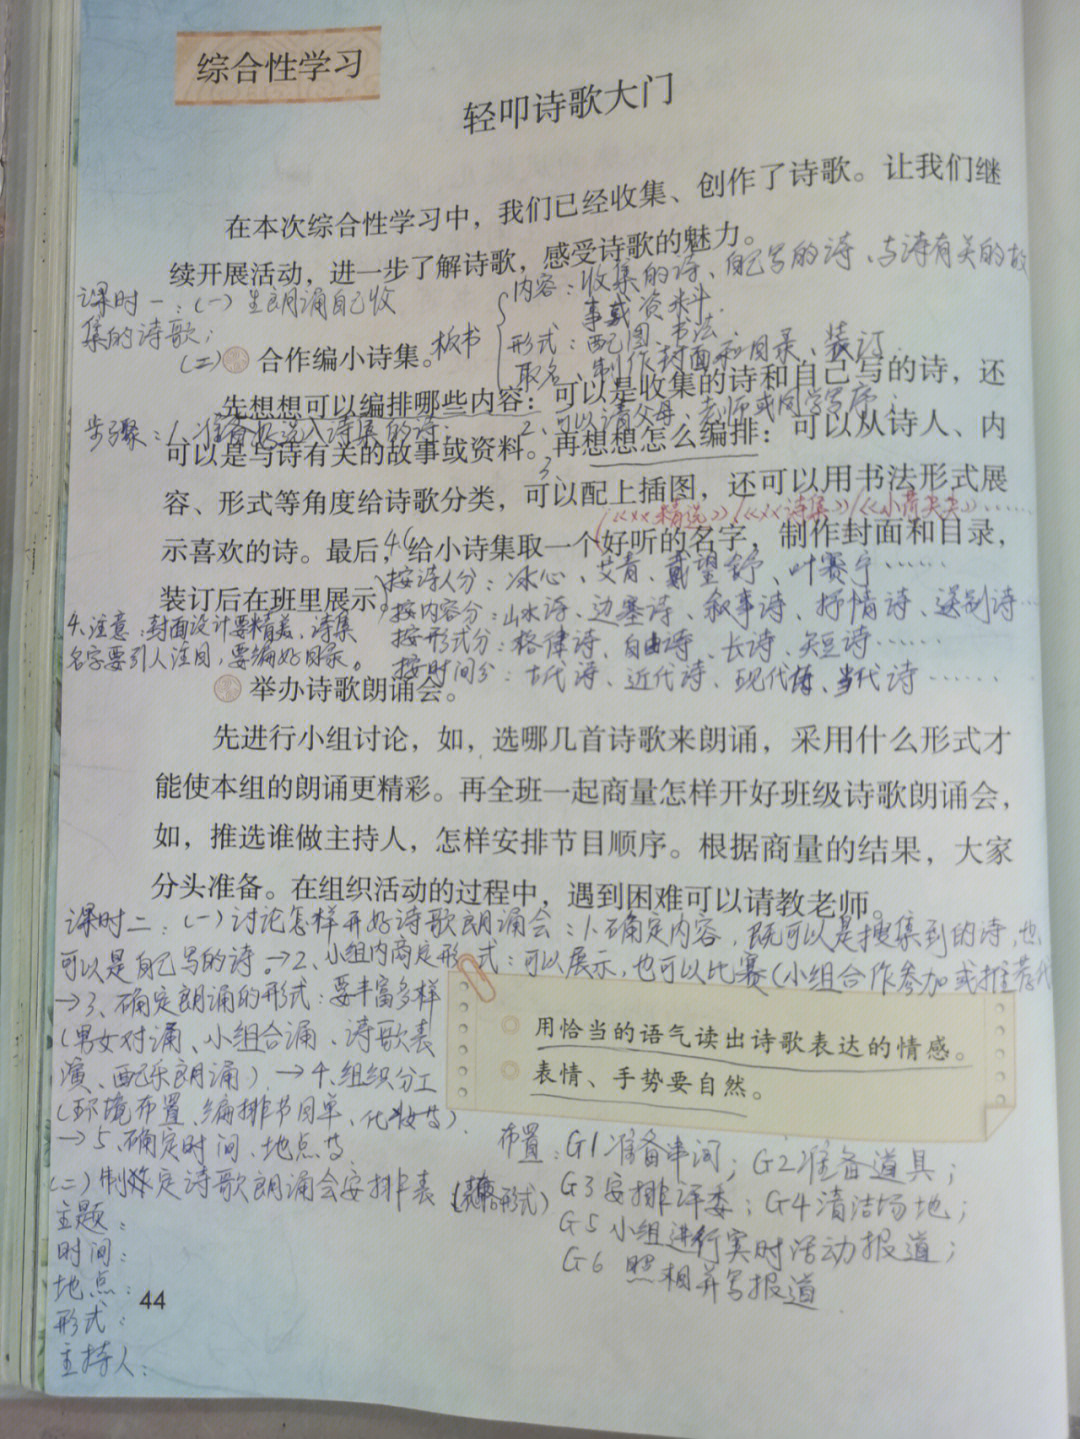 综合性学习
轻叩诗歌大门
在本次综合性学习中，我们已经收集、创作了诗歌。让我们继
续开展活动，进一步了解诗歌，感受诗歌的魅力。
内容：收集的诗、自己写的诗、与诗有关的故
事或资料.
课时一：(一)生朗诵自己收
集的诗歌；
板书
形式：配图、书法
取名、制作封面和目录、装订.
(二) 合作编小诗集。
先想想可以编排哪些内容：可以是收集的诗和自己写的诗，还
步骤：1、准备好选入诗集的诗； 2、可以请父母、老师或同学写序；
可以是与诗有关的故事或资料。再想想怎么编排：可以从诗人、内
3、
容、形式等角度给诗歌分类，可以配上插图，还可以用书法形式展
(《××精选》/《××诗集》/《小荷尖尖》……
示喜欢的诗。最后，4.给小诗集取一个好听的名字，制作封面和目录，
按诗人分：冰心、艾青、戴望舒、叶赛宁……
装订后在班里展示。
按内容分：山水诗、边塞诗、叙事诗、抒情诗、送别诗…
4.注意：封面设计要精美，诗集
名字要引人注目，要编好目录。
按形式分：格律诗、自由诗、长诗、短诗……
按时间分：古代诗、近代诗、现代诗、当代诗……
举办诗歌朗诵会。
先进行小组讨论，如，选哪几首诗歌来朗诵，采用什么形式才
能使本组的朗诵更精彩。再全班一起商量怎样开好班级诗歌朗诵会，
如，推选谁做主持人，怎样安排节目顺序。根据商量的结果，大家
分头准备。在组织活动的过程中，遇到困难可以请教老师。
课时二：(一)讨论怎样开好诗歌朗诵会：1、确定内容，既可以是搜集到的诗，也
可以是自己写的诗。→2、小组内商定形式：可以展示，也可以比赛(小组合作参加或推荐代
→3、确定朗诵的形式：要丰富多样
(男女对诵、小组合诵、诗歌表
演、配乐朗诵) →4、组织分工
(环境布置、编排节目单、化妆等).
→5、确定时间、地点等.
用恰当的语气读出诗歌表达的情感。
表情、手势要自然。
布置：G1准备串词；G2准备道具；
G3安排评委；G4清洁场地；
G5小组进行实时活动报道；
G6 照相并写报道
(二)制定诗歌朗诵会安排表
主题：
时间：
地点：
形式：
主持人：
44